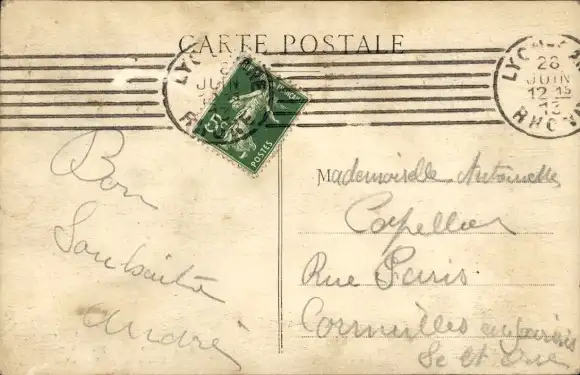 CARTE POSTALE
LYON
JUIN
RHONE
5c
POSTES
LYON
28
JUIN
12 15
13
RHONE
Bon
Souhaits
André
Mademoiselle Antoinette
Capellier
Rue Paris
Cormeilles en parisis
Se et Oise